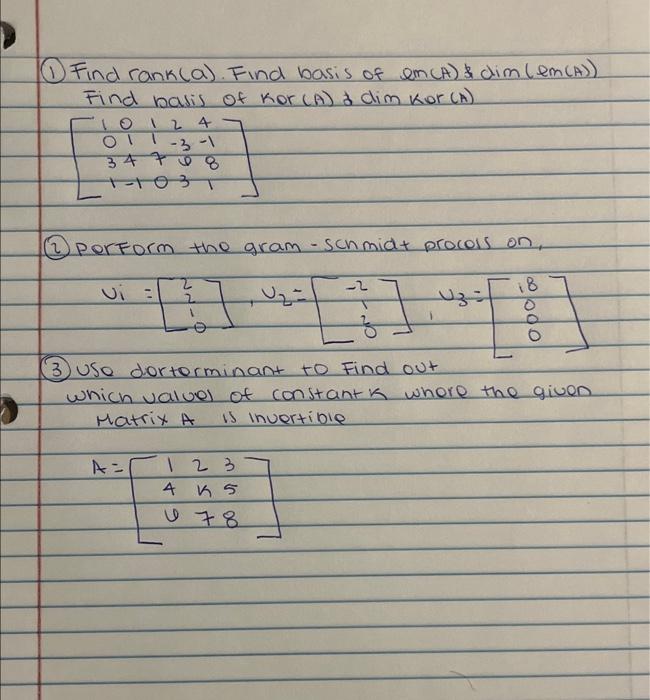 ① Find rank(a). Find basis of em(A) & dim(em(A))
Find basis of Kor(A) & dim Kor(A)
1 0 1 2 4
0 1 1 -3 -1
3 4 7 6 8
1 -1 0 3 1
② PerForm the gram-schmidt process on,
Vi = [2 2 1 0], V2 = [-2 1 2 0], V3 = [18 0 0 0]
③ Use dorterminant to Find out
which values of constant K where the given
Matrix A is invertible
A = 1 2 3
4 K 5
6 7 8